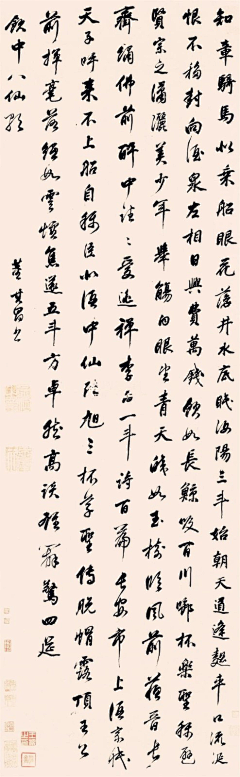 知章騎馬似乘船眼花落井水底眠汝陽三斗始朝天道逢麴車口流涎
恨不移封向酒泉左相日興費萬錢飲如長鯨吸百川銜杯樂聖稱避
賢宗之瀟灑美少年舉觴白眼望青天皎如玉樹臨風前蘇晉長
齋繡佛前醉中往〻愛逃禪李白一斗詩百篇長安市上酒家眠
天子呼來不上船自稱臣是酒中仙張旭三杯草聖傳脫帽露頂王公
前揮毫落紙如雲煙焦遂五斗方卓然高談雄辯驚四筵
飲中八仙歌
董其昌書